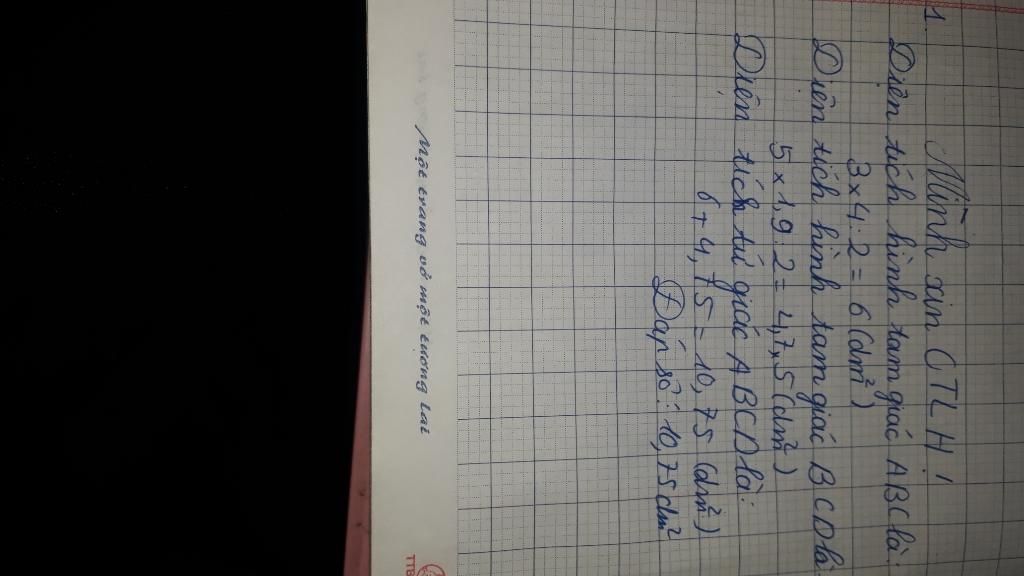 1.
Mình xin CTLH!
Diện tích hình tam giác ABC là:
3 x 4 : 2 = 6 (dm²)
Diện tích hình tam giác BCD là
5 x 1,9 : 2 = 4,75 (dm²)
Diện tích tứ giác ABCD là:
6 + 4,75 = 10,75 (dm²)
Đáp số: 10,75 dm²
Một trang vở một tương lai
TTB